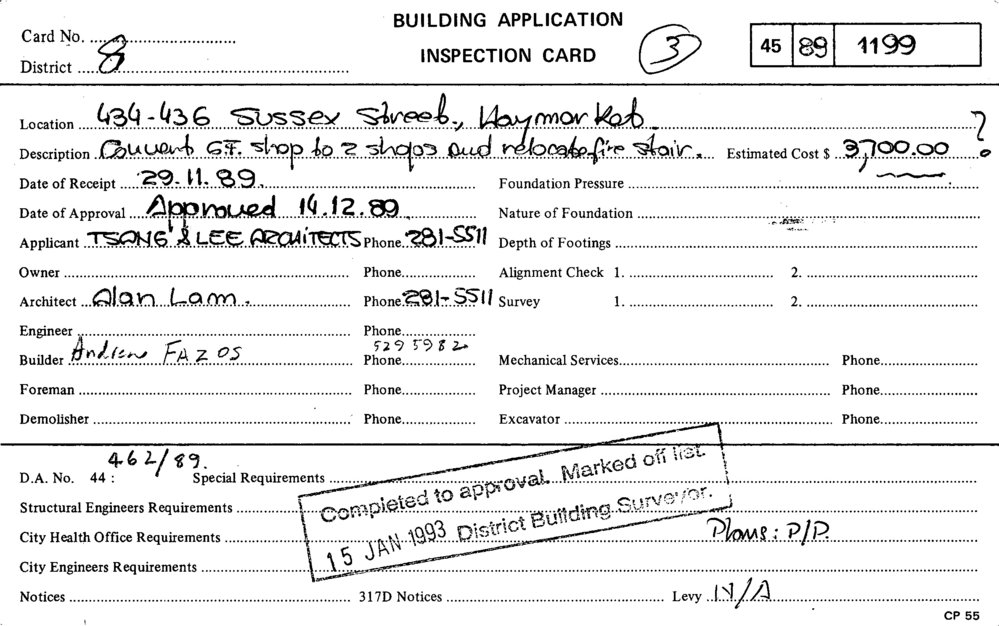 BUILDING APPLICATION
INSPECTION CARD
Card No.
District 8
3
45 89 1199
Location 434-436 Sussex Street, Haymarket.
Description Convert G.F. shop to 2 shops and relocate fire stair. Estimated Cost $ 3,700.00 ?
Date of Receipt 29.11.89. Foundation Pressure
Date of Approval Approved 14.12.89 Nature of Foundation
Applicant TSANG & LEE ARCHITECTS Phone 281-5511 Depth of Footings
Owner Phone Alignment Check 1. 2.
Architect Alan Lam. Phone 281-5511 Survey 1. 2.
Engineer Phone
Builder Andrew FAZOS Phone 529 5982 Mechanical Services Phone
Foreman Phone Project Manager Phone
Demolisher Phone Excavator Phone
D.A. No. 44 : 462/89. Special Requirements
Structural Engineers Requirements
City Health Office Requirements Plans: P/P.
City Engineers Requirements
Completed to approval. Marked off list.
15 JAN 1993 District Building Surveyor.
Notices 317D Notices Levy N/A
CP 55